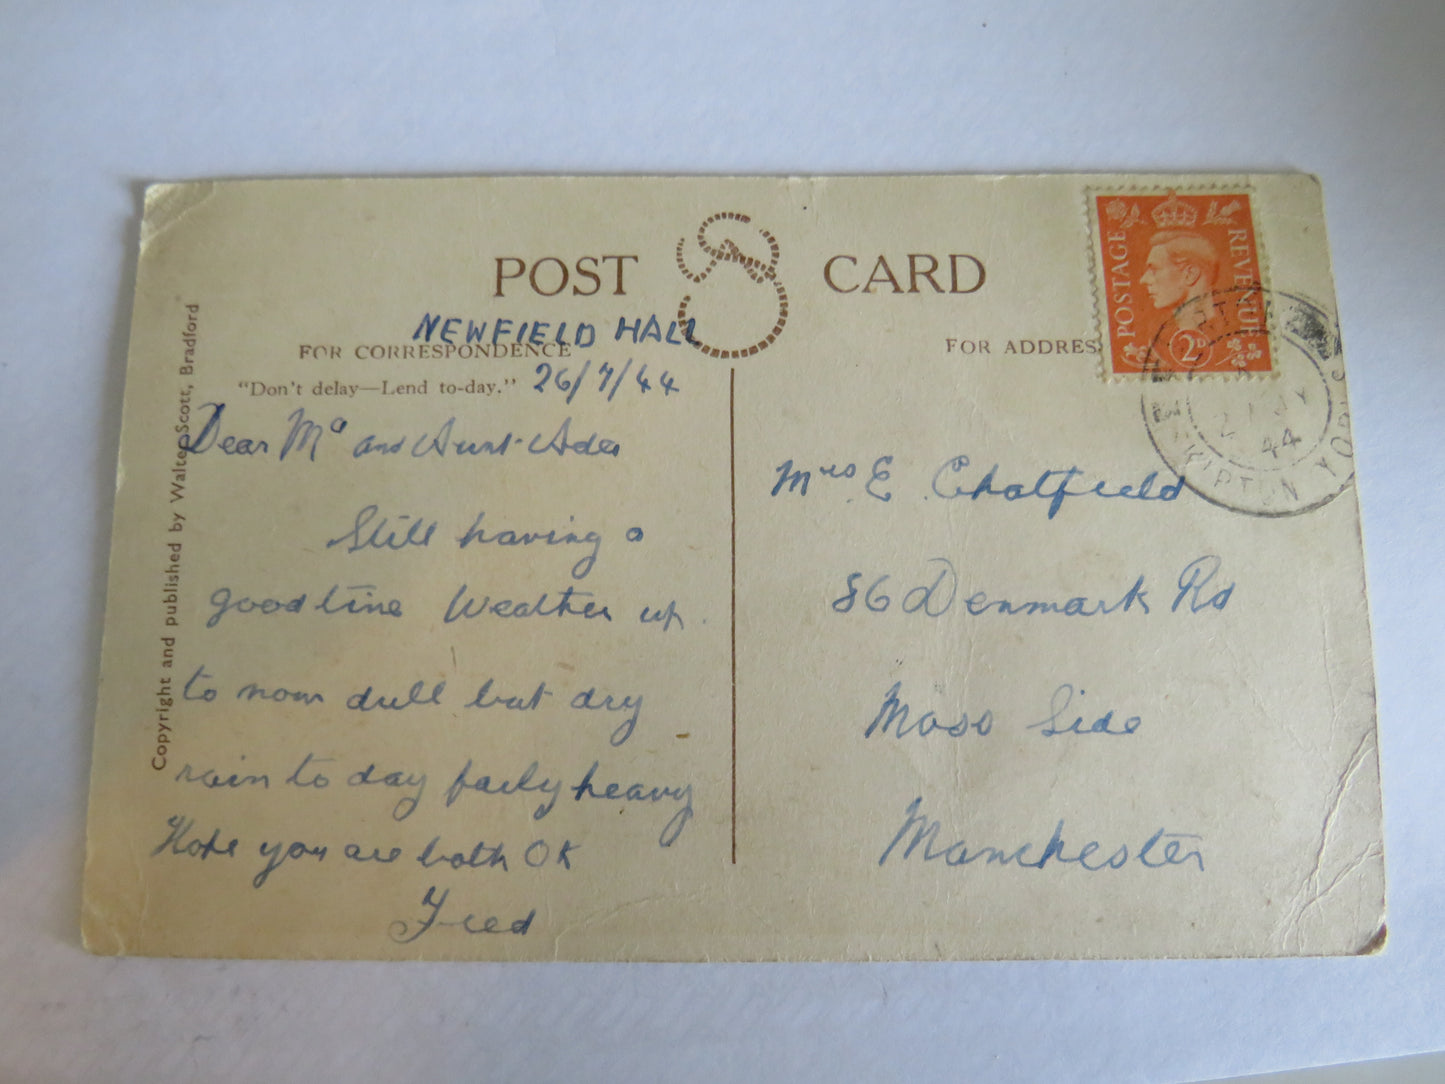 POST CARD
NEWFIELD HALL
FOR CORRESPONDENCE
"Don't delay—Lend to-day." 26/7/44
Dear Ma and Aunt Ada
Still having a
good time Weather up
to now dull but dry
rain to day fairly heavy
Hope you are both OK
Fred
Copyright and published by Walter Scott, Bradford
FOR ADDRES
POSTAGE REVENUE
2D
44
SKIPTON YORKS
Mrs E Chatfield
86 Denmark Rd
Moss Side
Manchester